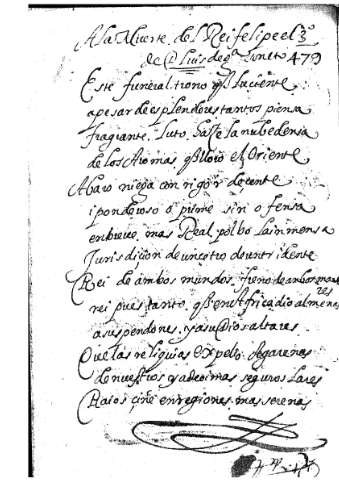 A la Muerte del Rei felipe el 3º
de D Luis de gª Soneto 479
Este funeral trono q̃ luciente
apesar de esplendores tantos piensa
fragrante luto haze la nube densa
de los Aromas q̃ lloro el Oriente
Avaro niega con rigor decente
i ponderoso oprime sin ofensa
en breve mas Real polbo la inmensa
Jurisdiçion de un cetro de un tridente
Rei de ambos mundos freno de ambos mares
rei pues tanto q̃ en
a suspendones ya sus altares
Que las reliquias expelio Agarenas
de nuestros ya de mas seguros Lares
Raios ciñe en regiones mas serenas